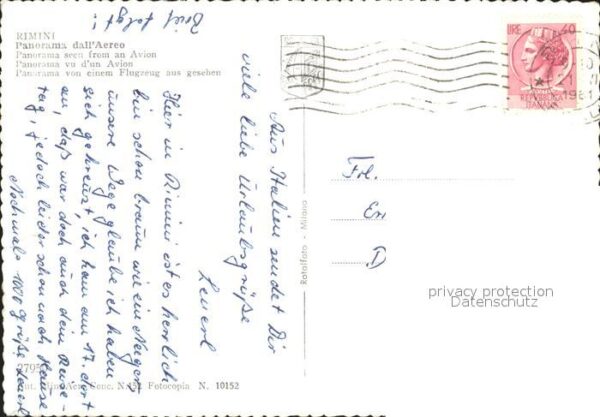 Brief folgt!
RIMINI
Panorama dall'Aereo
Panorama seen from an Avion
Panorama vu d'un Avion
Panorama von einem Flugzeug aus gesehen
LIRE 40
REPVBBLICA
ITALIANA
1961
Aus Italien sendet Dir
viele liebe Urlaubsgrüße
Leuerl
Hier in Rimini ist es herrlich
bin schon braun wie ein Neger
unsere Wege glaube ich haben
sich gekreuzt, ich kam am 17. dort
an, daß war doch auch dein Reise-
tag, jedoch leider schon nach Hause
Nochmals 1000 Grüße Leuerl
Frl.
En
D
Rotalfoto - Milano
privacy protection
Datenschutz
2795
Aut. Min. Aer. Conc. N. 152 Fotocopia N. 10152